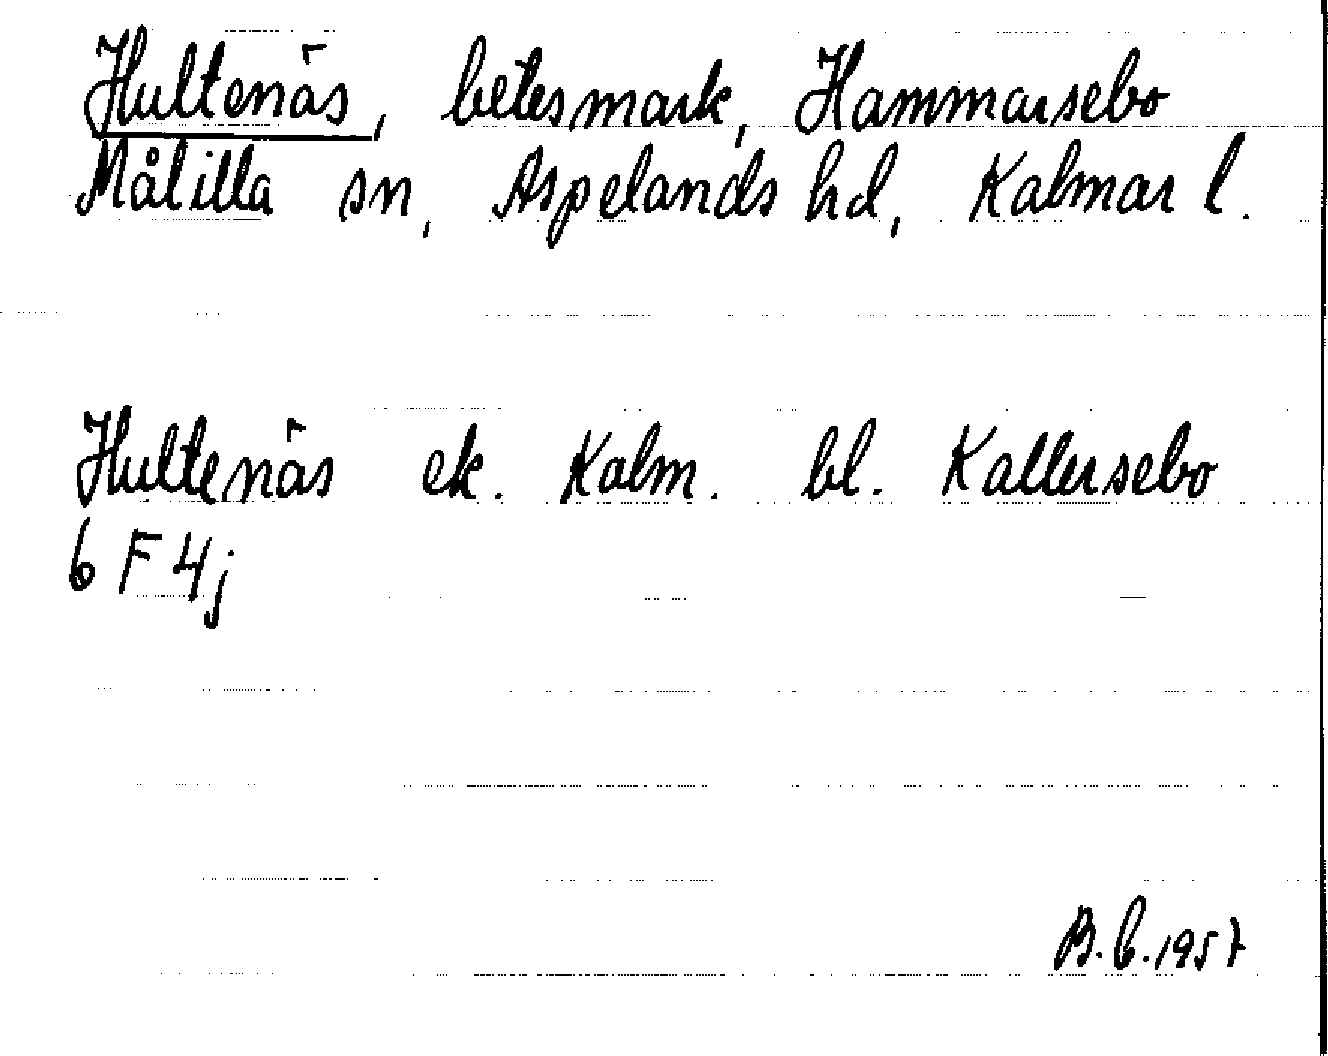 Hultenäs, betesmark, Hammarsebo
Målilla sn, Aspelands hd, Kalmar l.
Hultenäs ek. Kalm. bl. Kallersebo
6 F 4j
B.b.1957